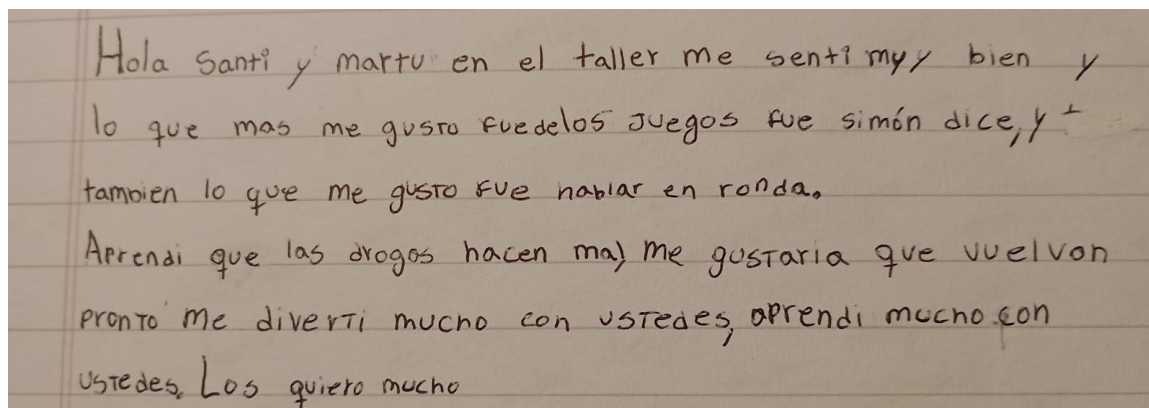 Hola Santi y martu en el taller me senti myy bien y
lo que mas me gusto fue de los juegos fue simón dice, y
tambien lo que me gusto fue hablar en ronda.
Aprendi que las drogas hacen mal, me gustaria que vuelvan
pronto me diverti mucho con ustedes, aprendi mucho con
ustedes. Los quiero mucho